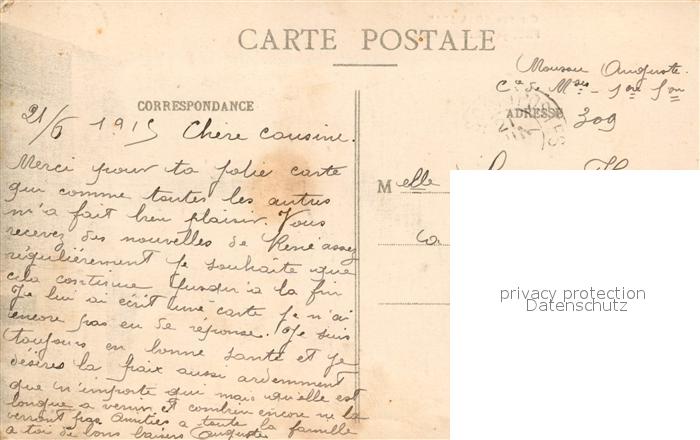 CARTE POSTALE
Mouson Auguste.
Cie de Mses - 1ère Son
CORRESPONDANCE
ADRESSE
309
21/6 1915 Chère cousine.
Merci pour ta jolie carte
qui comme toutes les autres
m'a fait bien plaisir. Vous
recevez des nouvelles de René assez
régulièrement je souhaite que
cela continue jusqu'à la fin
Je lui ai écrit une carte je n'ai
encore pas eu de réponse. Je suis
toujours en bonne santé et je
désires la paix aussi ardemment
que n'importe qui mais qu'elle est
longue a venir et combien encore ne la
verront pas Amitiés a toute la famille
a toi de bons baisers Auguste
Melle
privacy protection
Datenschutz